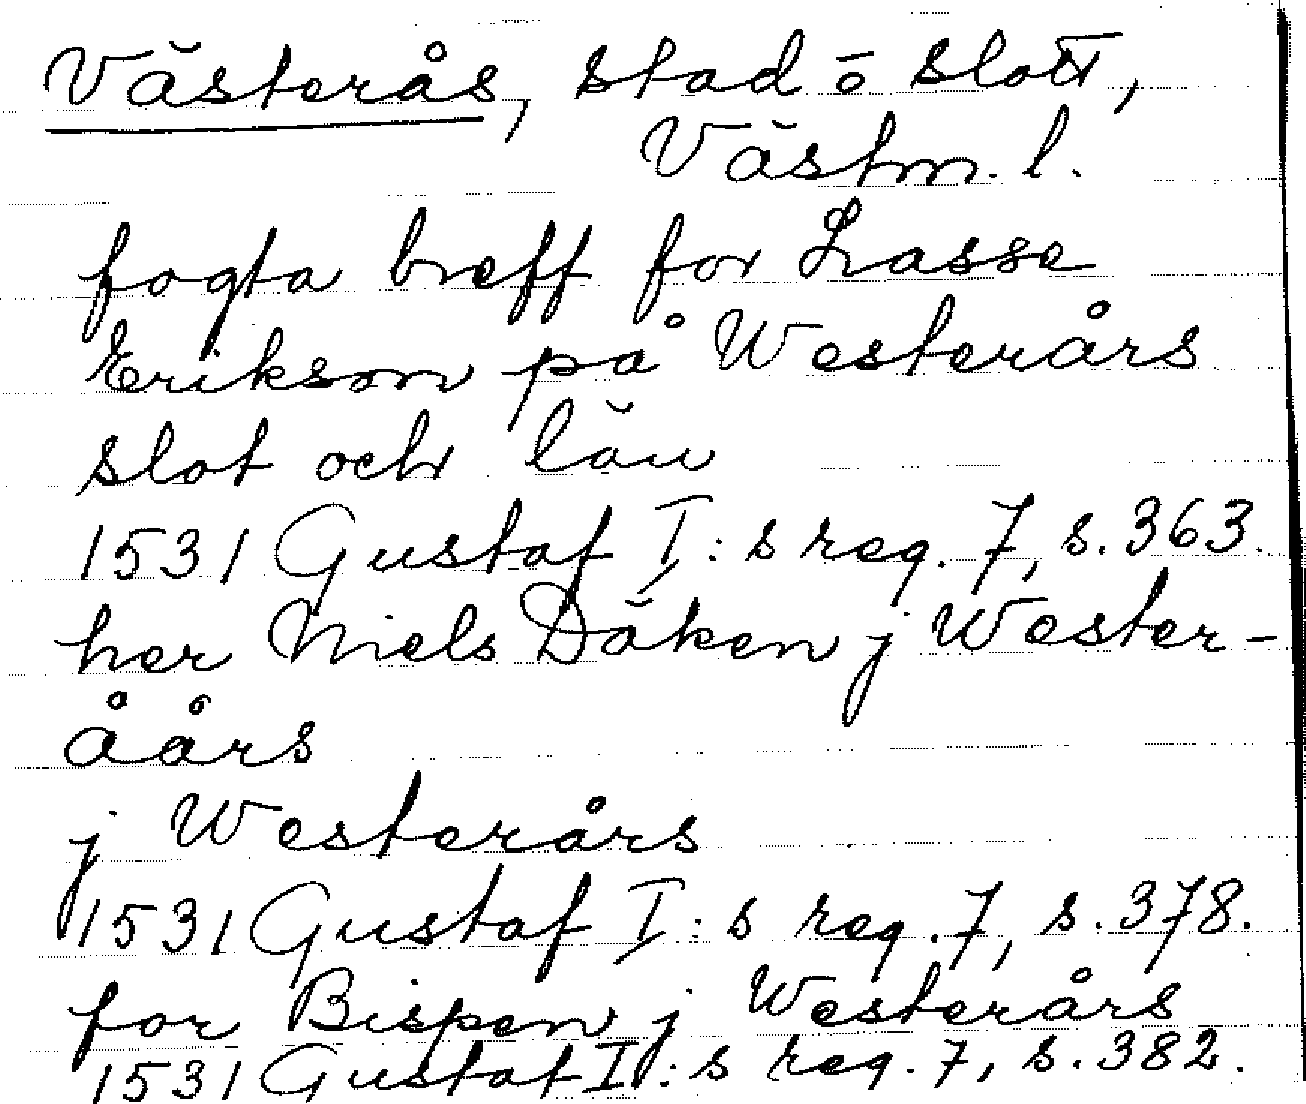 Västerås, stad o slott,
Västm. l.
fogta breff for Lasse
Erikson på Westerårs
slot och län
1531 Gustaf I:s reg. 7, s. 363.
her Niels Däken j Wester-
åårs
j Westerårs
1531 Gustaf I:s reg. 7, s. 378.
for Bispen j Westerårs
1531 Gustaf I:s reg. 7, s. 382.